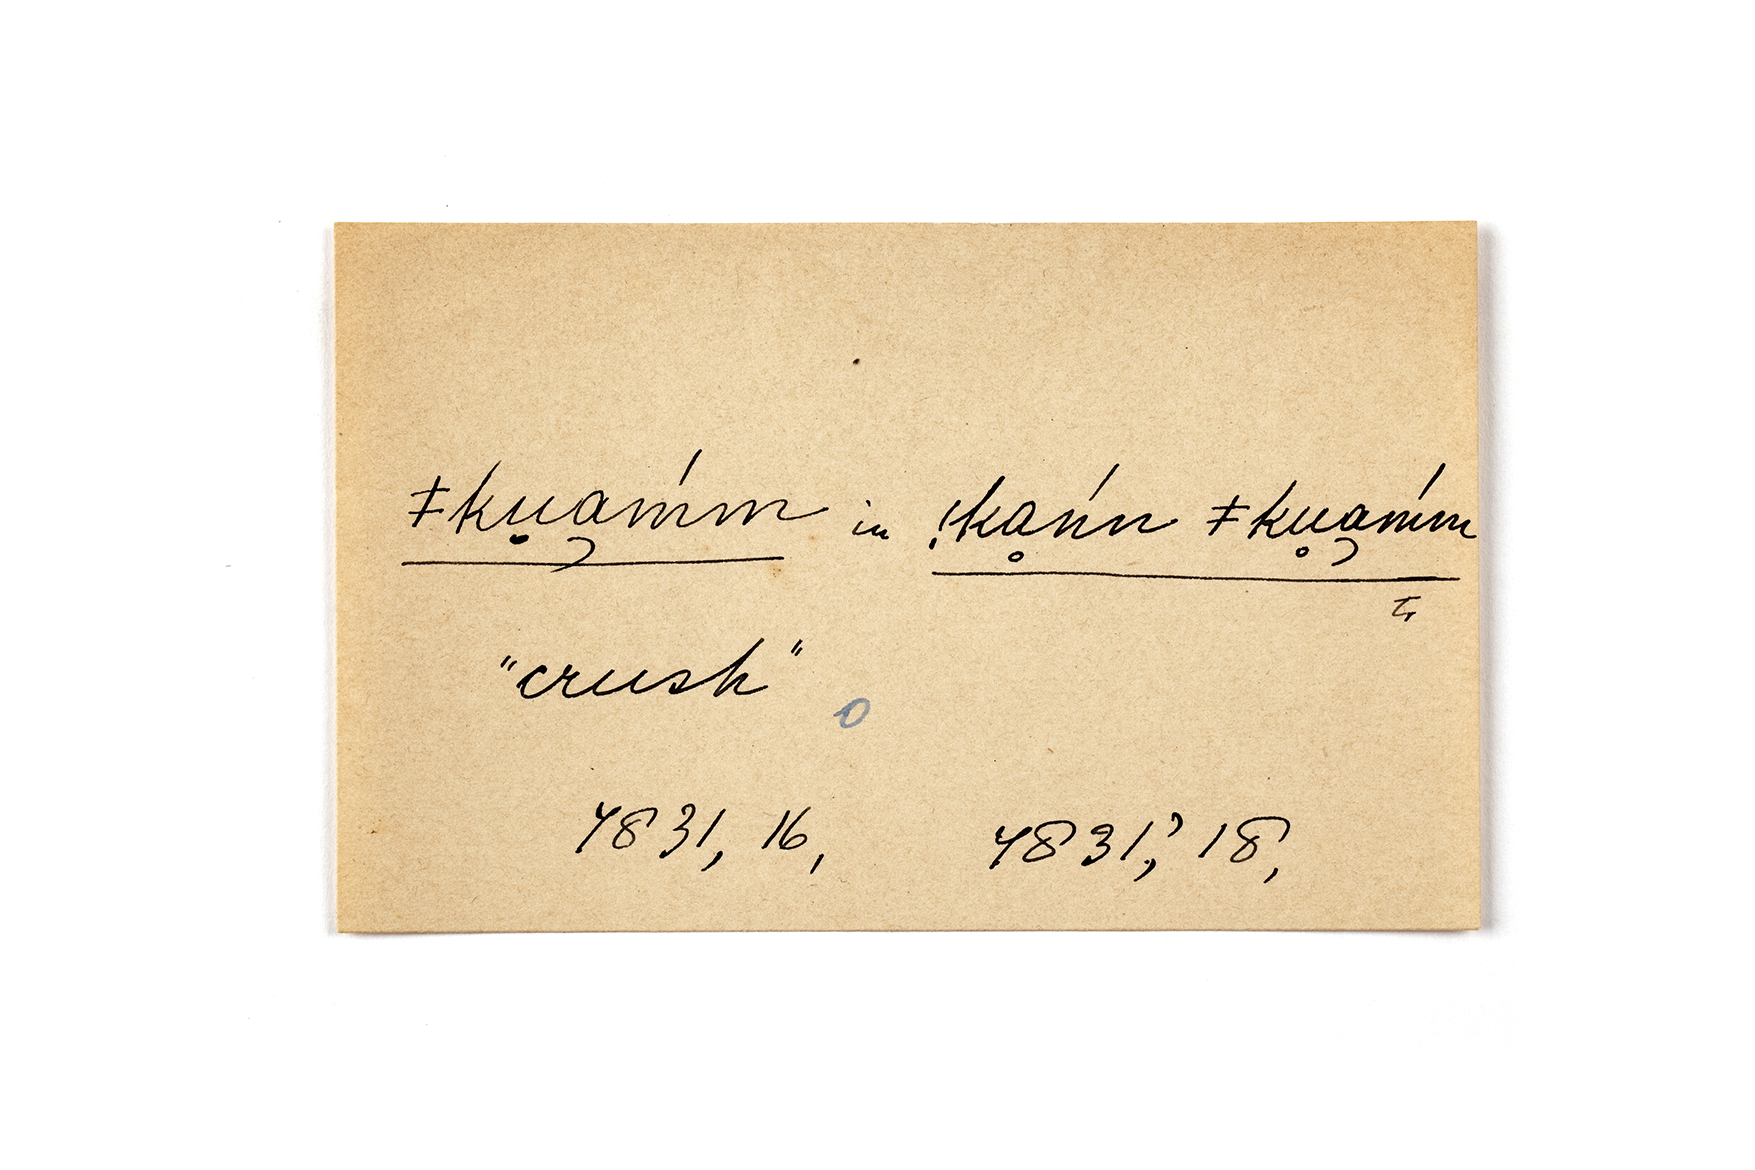 ǂku̥a̡m̓m in !kḁn̓n ǂku̥a̡m̓m
"crush"
0
4831, 16, 4831,, 18,